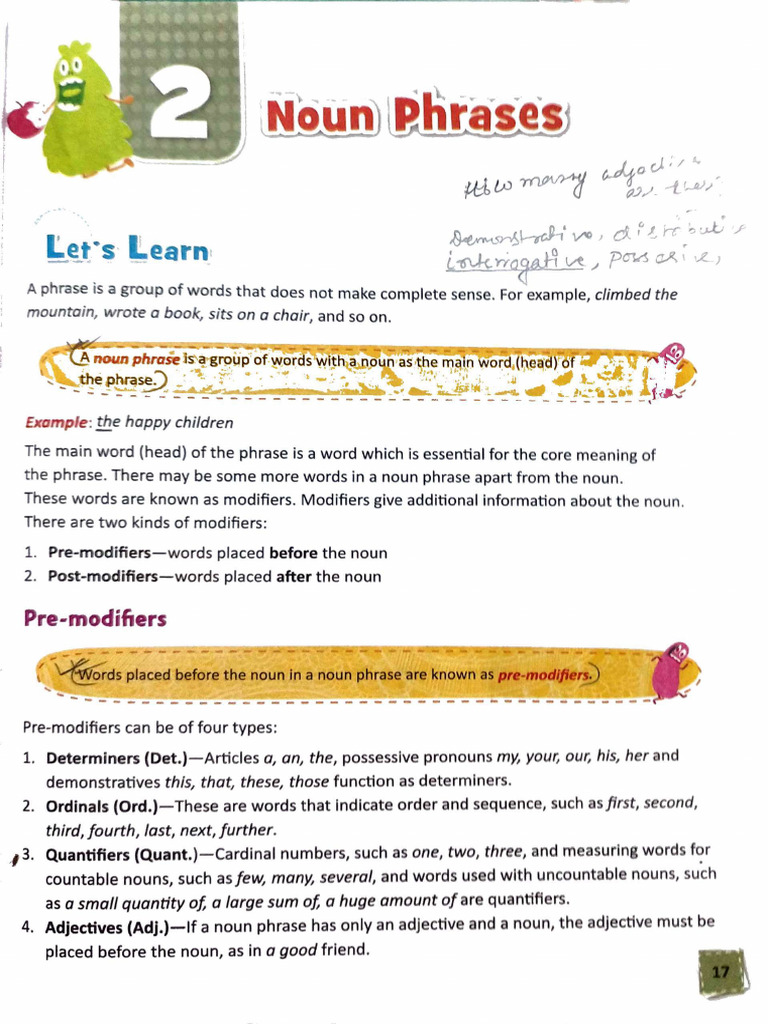 2
Noun Phrases
How many adjective
are ther
Demonstrative, distributi
interrogative, possesive,
Let's Learn
A phrase is a group of words that does not make complete sense. For example, climbed the
mountain, wrote a book, sits on a chair, and so on.
A noun phrase is a group of words with a noun as the main word (head) of
the phrase.
Example: the happy children
The main word (head) of the phrase is a word which is essential for the core meaning of
the phrase. There may be some more words in a noun phrase apart from the noun.
These words are known as modifiers. Modifiers give additional information about the noun.
There are two kinds of modifiers:
1. Pre-modifiers—words placed before the noun
2. Post-modifiers—words placed after the noun
Pre-modifiers
Words placed before the noun in a noun phrase are known as pre-modifiers.
Pre-modifiers can be of four types:
1. Determiners (Det.)—Articles a, an, the, possessive pronouns my, your, our, his, her and
demonstratives this, that, these, those function as determiners.
2. Ordinals (Ord.)—These are words that indicate order and sequence, such as first, second,
third, fourth, last, next, further.
3. Quantifiers (Quant.)—Cardinal numbers, such as one, two, three, and measuring words for
countable nouns, such as few, many, several, and words used with uncountable nouns, such
as a small quantity of, a large sum of, a huge amount of are quantifiers.
4. Adjectives (Adj.)—If a noun phrase has only an adjective and a noun, the adjective must be
placed before the noun, as in a good friend.
17